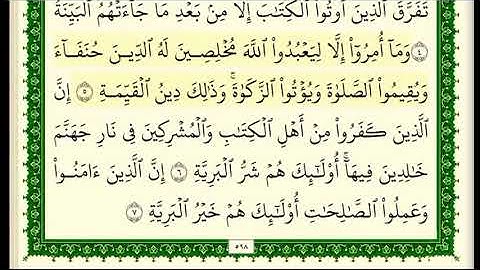 تَفَرَّقَ ٱلَّذِينَ أُوتُوا۟ ٱلْكِتَٰبَ إِلَّا مِنۢ بَعْدِ مَا جَآءَتْهُمُ ٱلْبَيِّنَةُ
﴿٤﴾ وَمَآ أُمِرُوٓا۟ إِلَّا لِيَعْبُدُوا۟ ٱللَّهَ مُخْلِصِينَ لَهُ ٱلدِّينَ حُنَفَآءَ
وَيُقِيمُوا۟ ٱلصَّلَوٰةَ وَيُؤْتُوا۟ ٱلزَّكَوٰةَ ۚ وَذَٰلِكَ دِينُ ٱلْقَيِّمَةِ ﴿٥﴾ إِنَّ
ٱلَّذِينَ كَفَرُوا۟ مِنْ أَهْلِ ٱلْكِتَٰبِ وَٱلْمُشْرِكِينَ فِى نَارِ جَهَنَّمَ
خَٰلِدِينَ فِيهَآ ۚ أُو۟لَٰٓئِكَ هُمْ شَرُّ ٱلْبَرِيَّةِ ﴿٦﴾ إِنَّ ٱلَّذِينَ ءَامَنُوا۟
وَعَمِلُوا۟ ٱلصَّٰلِحَٰتِ أُو۟لَٰٓئِكَ هُمْ خَيْرُ ٱلْبَرِيَّةِ ﴿٧﴾
٥٩٨